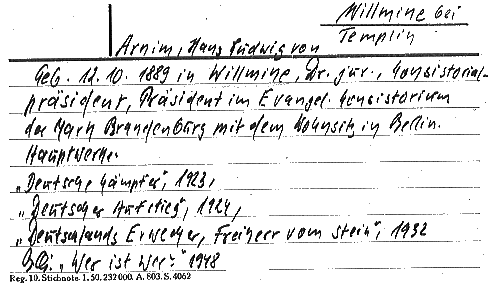 Willmine bei
Templin
Arnim, Hans Ludwig von
Geb. 12.10.1889 in Willmine, Dr. jur., Konsistorial-
präsident, Präsident im Evangel. Konsistorium
der Mark Brandenburg mit dem Wohnsitz in Berlin.
Hauptwerke:
„Deutsche Kämpfer", 1923,
„Deutscher Aufstieg", 1924,
„Deutschlands Erwecker, Freiherr vom Stein", 1932
„Wer ist Wer?" 1948
Reg. 10. Stichnote. 1. 50. 232000. A. 803. S. 4062